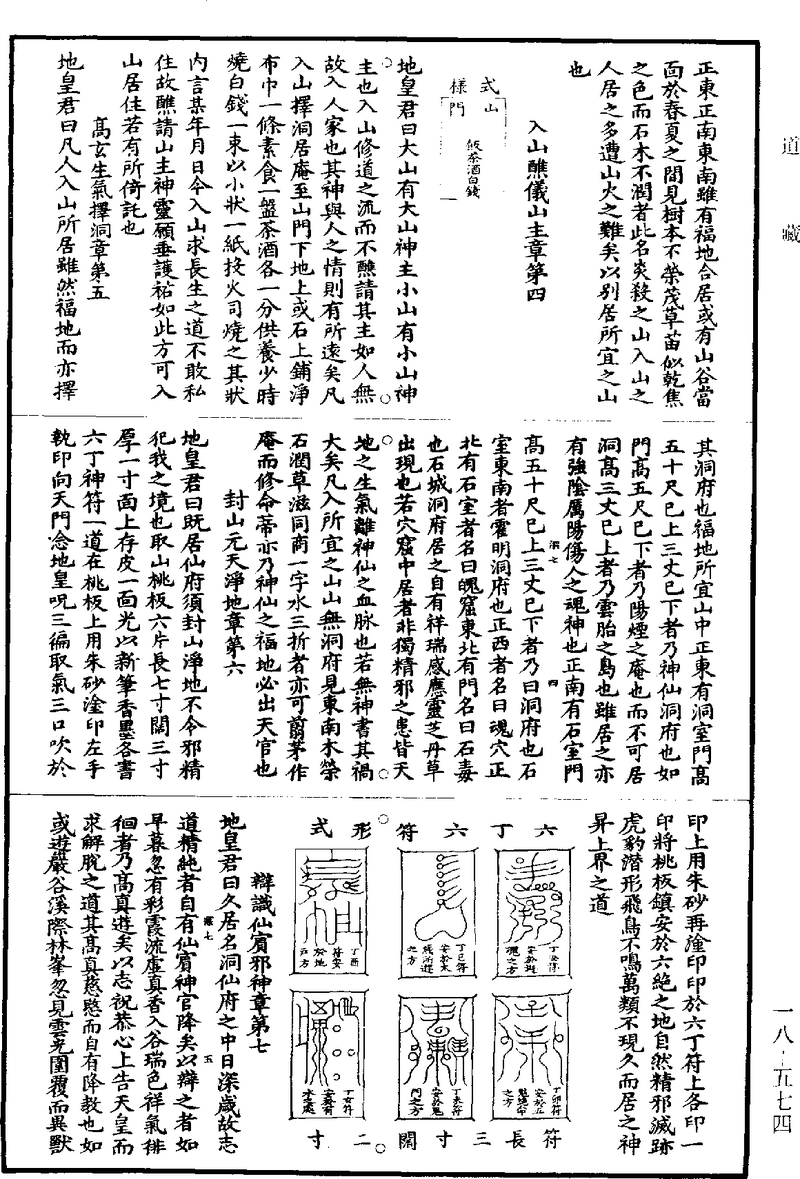 道藏
正東正南東南雖有福地合居或有山谷當
面於春夏之間見樹本不榮茂草苗似乾焦
之色而石木不潤者此名炎殺之山入山之
人居之多遭山火之難矣以別居所宜之山
也
入山醮儀山主章第四
式山
樣門
地皇君曰大山有大山神主小山有小山神
主也入山修道之流而不醮請其主如人無
故入人家也其神與人之情則有所遠矣凡
入山擇洞居庵至山門下地上或石上鋪淨
布巾一條素食一盤茶酒各一分供養少時
燒白錢一束以小狀一紙投火司燒之其狀
內言某年月日今入山求長生之道不敢私
住故醮請山主神靈願垂護祐如此方可入
山居住若有所倚託也
高玄生氣擇洞章第五
地皇君曰凡人入山所居雖然福地而亦擇
其洞府也福地所宜山中正東有洞室門高
五十尺已上三丈已下者乃神仙洞府也如
門高五尺已下者乃陽煙之庵也而不可居
洞高三丈已上者乃雲胎之島也雖居之亦
有強陰厲陽傷人之魂神也正南有石室門
高五十尺已上三丈已下者乃曰洞府也石
室東南者霍明洞府也正西者名曰魂穴正
北有石室者名曰魄窟東北有門名曰石毒
也石城洞府居之自有祥瑞感應靈芝丹草
出現也若穴竅中居者非獨精邪之患皆天
地之生氣離神仙之血脉也若無神書其禍
大矣凡入所宜之山山無洞府見東南木榮
石潤草滋同商一字水三折者亦可翦茅作
庵而修命蒂亦乃神仙之福地必出天官也
封山元天淨地章第六
地皇君曰既居仙府須封山淨地不令邪精
犯我之境也取山桃板六片長七寸闊三寸
厚一寸面上存皮一面光以新筆香墨各書
六丁神符一道在桃板上用朱砂塗印左手
執印向天門念地皇呪三徧取氣三口吹於
印上用朱砂再塗印印於六丁符上各印一
印將桃板鎮安於六絕之地自然精邪滅跡
虎豹潛形飛鳥不鳴萬類不現久而居之神
昇上界之道
六丁六符形式
符長三寸闊二寸
辯識仙賓邪神章第七
地皇君曰久居名洞仙府之中日深歲故志
道精純者自有仙賓神官降矣以辯之者如
早暮忽有彩霞流虛真香入谷瑞色祥氣徘
徊者乃高真遊矣以志祝恭心上告天皇而
求解脫之道其高真慈愍而自有降教也如
或遊巖谷溪際林峯忽見雲光圍覆而異獸
一八-五七四